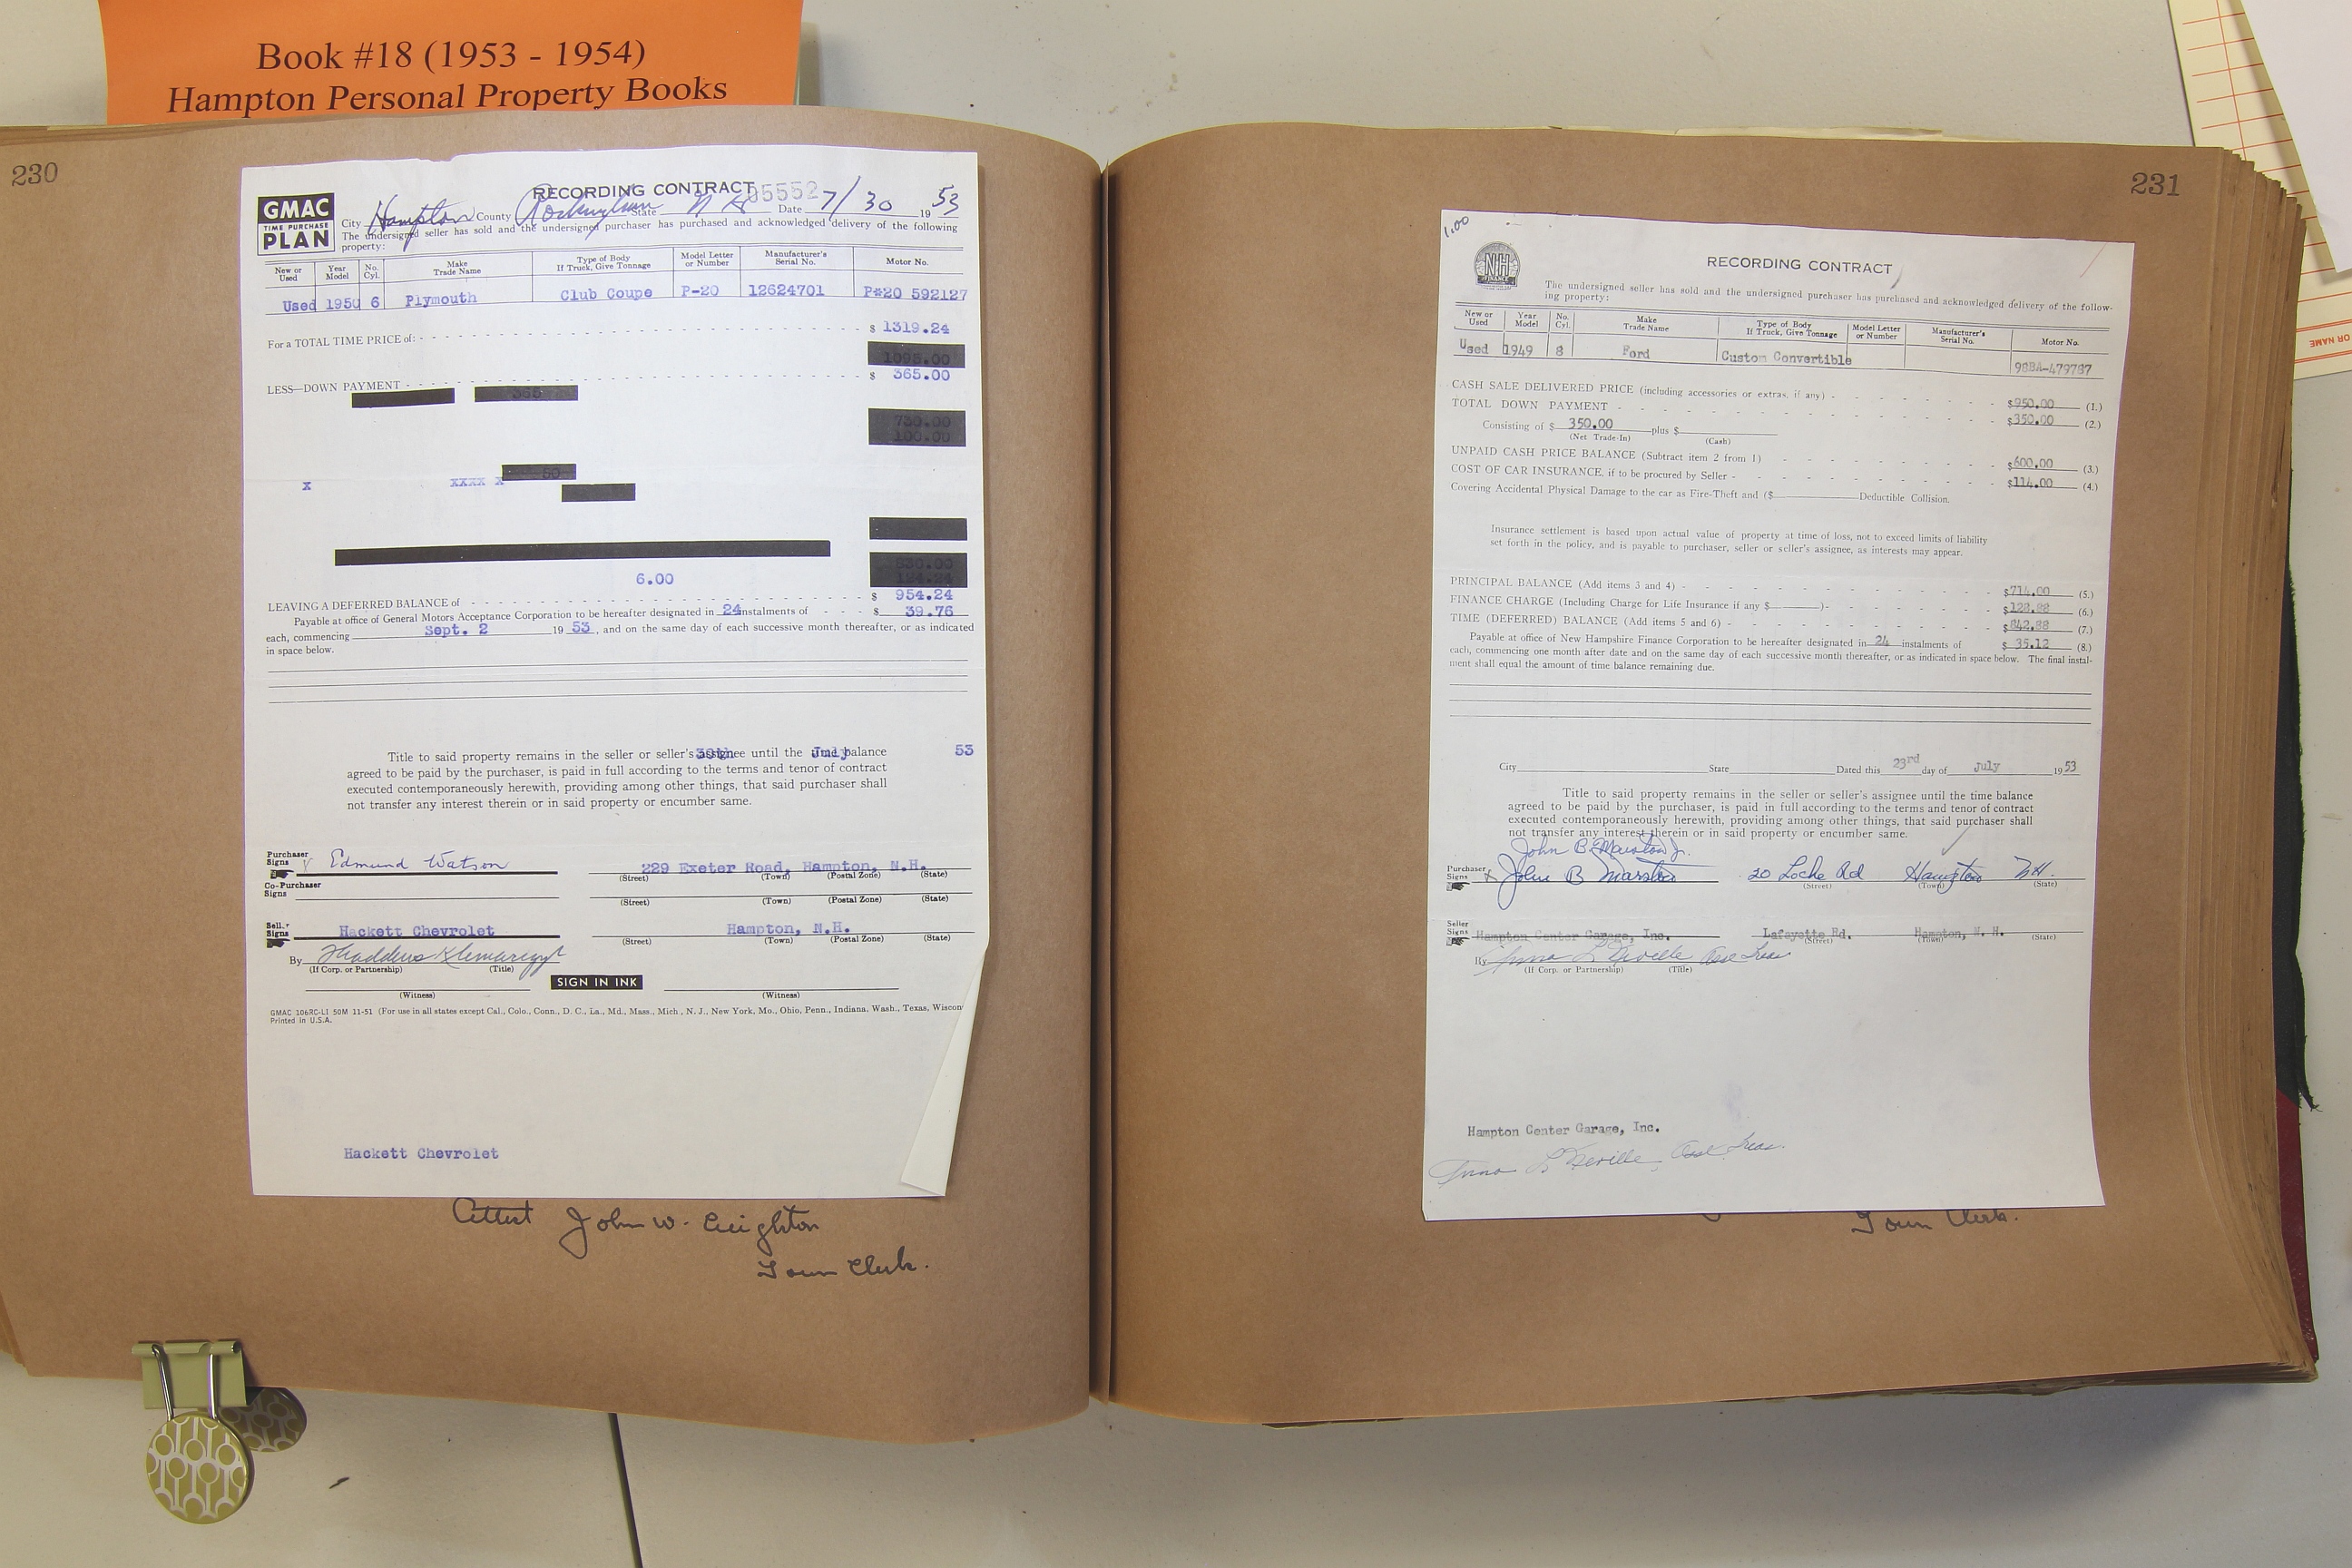 Book #18 (1953 - 1954)
Hampton Personal Property Books
230
GMAC
TIME PURCHASE
PLAN
RECORDING CONTRACT 05552
City Hampton County Rockingham State N H Date 7/30 1953
The undersigned seller has sold and the undersigned purchaser has purchased and acknowledged delivery of the following
property:
New or Used Year Model No. Cyl. Make Trade Name Type of Body If Truck, Give Tonnage Model Letter or Number Manufacturer's Serial No. Motor No.
Used 1950 6 Plymouth Club Coupe P-20 12624701 P*20 592127
For a TOTAL TIME PRICE of: $ 1319.24
1095.00
LESS—DOWN PAYMENT $ 365.00
365
730.00
100.00
x xxxx x 50
830.00
124.24
6.00
LEAVING A DEFERRED BALANCE of $ 954.24
Payable at office of General Motors Acceptance Corporation to be hereafter designated in 24 instalments of $ 39.76
each, commencing Sept. 2 19 53, and on the same day of each successive month thereafter, or as indicated
in space below.
Title to said property remains in the seller or seller's assignee until the time balance 30th July 53
agreed to be paid by the purchaser, is paid in full according to the terms and tenor of contract
executed contemporaneously herewith, providing among other things, that said purchaser shall
not transfer any interest therein or in said property or encumber same.
Purchaser Signs Edmund Watson 229 Exeter Road, Hampton, N.H.
(Street) (Town) (Postal Zone) (State)
Co-Purchaser Signs
(Street) (Town) (Postal Zone) (State)
Seller Signs Hackett Chevrolet Hampton, N.H.
(Street) (Town) (Postal Zone) (State)
By Thaddeus
(If Corp. or Partnership) (Title)
SIGN IN INK
(Witness) (Witness)
GMAC 106RC-LI 50M 11-51 (For use in all states except Cal., Colo., Conn., D. C., La., Md., Mass., Mich., N. J., New York, Mo., Ohio, Penn., Indiana, Wash., Texas, Wiscon
Printed in U.S.A.
Hackett Chevrolet
Attest John W. Creighton
Town Clerk.
231
1.00
NH
FINANCE
RECORDING CONTRACT
The undersigned seller has sold and the undersigned purchaser has purchased and acknowledged delivery of the follow-
ing property:
New or Used Year Model No. Cyl. Make Trade Name Type of Body If Truck, Give Tonnage Model Letter or Number Manufacturer's Serial No. Motor No.
Used 1949 8 Ford Custom Convertible 98BA-479787
CASH SALE DELIVERED PRICE (including accessories or extras, if any) - $950.00 (1.)
TOTAL DOWN PAYMENT - $350.00 (2.)
Consisting of $ 350.00 plus $
(Net Trade-In) (Cash)
UNPAID CASH PRICE BALANCE (Subtract item 2 from 1) $600.00 (3.)
COST OF CAR INSURANCE, if to be procured by Seller - $114.00 (4.)
Covering Accidental Physical Damage to the car as Fire-Theft and ($ Deductible Collision.
Insurance settlement is based upon actual value of property at time of loss, not to exceed limits of liability
set forth in the policy, and is payable to purchaser, seller or seller's assignee, as interests may appear.
PRINCIPAL BALANCE (Add items 3 and 4) - $714.00 (5.)
FINANCE CHARGE (Including Charge for Life Insurance if any $ )- $128.88 (6.)
TIME (DEFERRED) BALANCE (Add items 5 and 6) - $842.88 (7.)
Payable at office of New Hampshire Finance Corporation to be hereafter designated in 24 instalments of $ 35.12 (8.)
each, commencing one month after date and on the same day of each successive month thereafter, or as indicated in space below. The final instal-
ment shall equal the amount of time balance remaining due.
City State Dated this 23rd day of July 1953
Title to said property remains in the seller or seller's assignee until the time balance
agreed to be paid by the purchaser, is paid in full according to the terms and tenor of contract
executed contemporaneously herewith, providing among other things, that said purchaser shall
not transfer any interest therein or in said property or encumber same.
John B. Marston Jr.
Purchaser Signs x John B Marston 20 Locke Rd Hampton NH.
(Street) (Town) (State)
Seller Signs Hampton Center Garage, Inc. Lafayette Rd. Hampton, N. H.
(Street) (Town) (State)
By Anna L Neville Asst Treas
(If Corp. or Partnership) (Title)
Hampton Center Garage, Inc.
Anna L Neville Asst Treas.
Town Clerk.
OR NAME